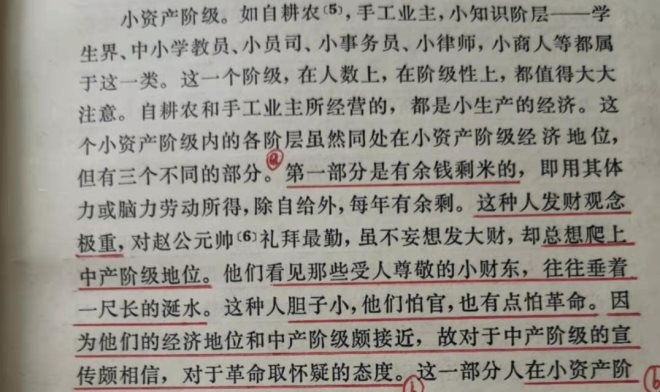 小资产阶级。如自耕农〔5〕,手工业主,小知识阶层——学
生界、中小学教员、小员司、小事务员、小律师,小商人等都属
于这一类。这一个阶级,在人数上,在阶级性上,都值得大大
注意。自耕农和手工业主所经营的,都是小生产的经济。这
个小资产阶级内的各阶层虽然同处在小资产阶级经济地位,
但有三个不同的部分。第一部分是有余钱剩米的,即用其体
力或脑力劳动所得,除自给外,每年有余剩。这种人发财观念
极重,对赵公元帅〔6〕礼拜最勤,虽不妄想发大财,却总想爬上
中产阶级地位。他们看见那些受人尊敬的小财东,往往垂着
一尺长的涎水。这种人胆子小,他们怕官,也有点怕革命。因
为他们的经济地位和中产阶级颇接近,故对于中产阶级的宣
传颇相信,对于革命取怀疑的态度。这一部分人在小资产阶